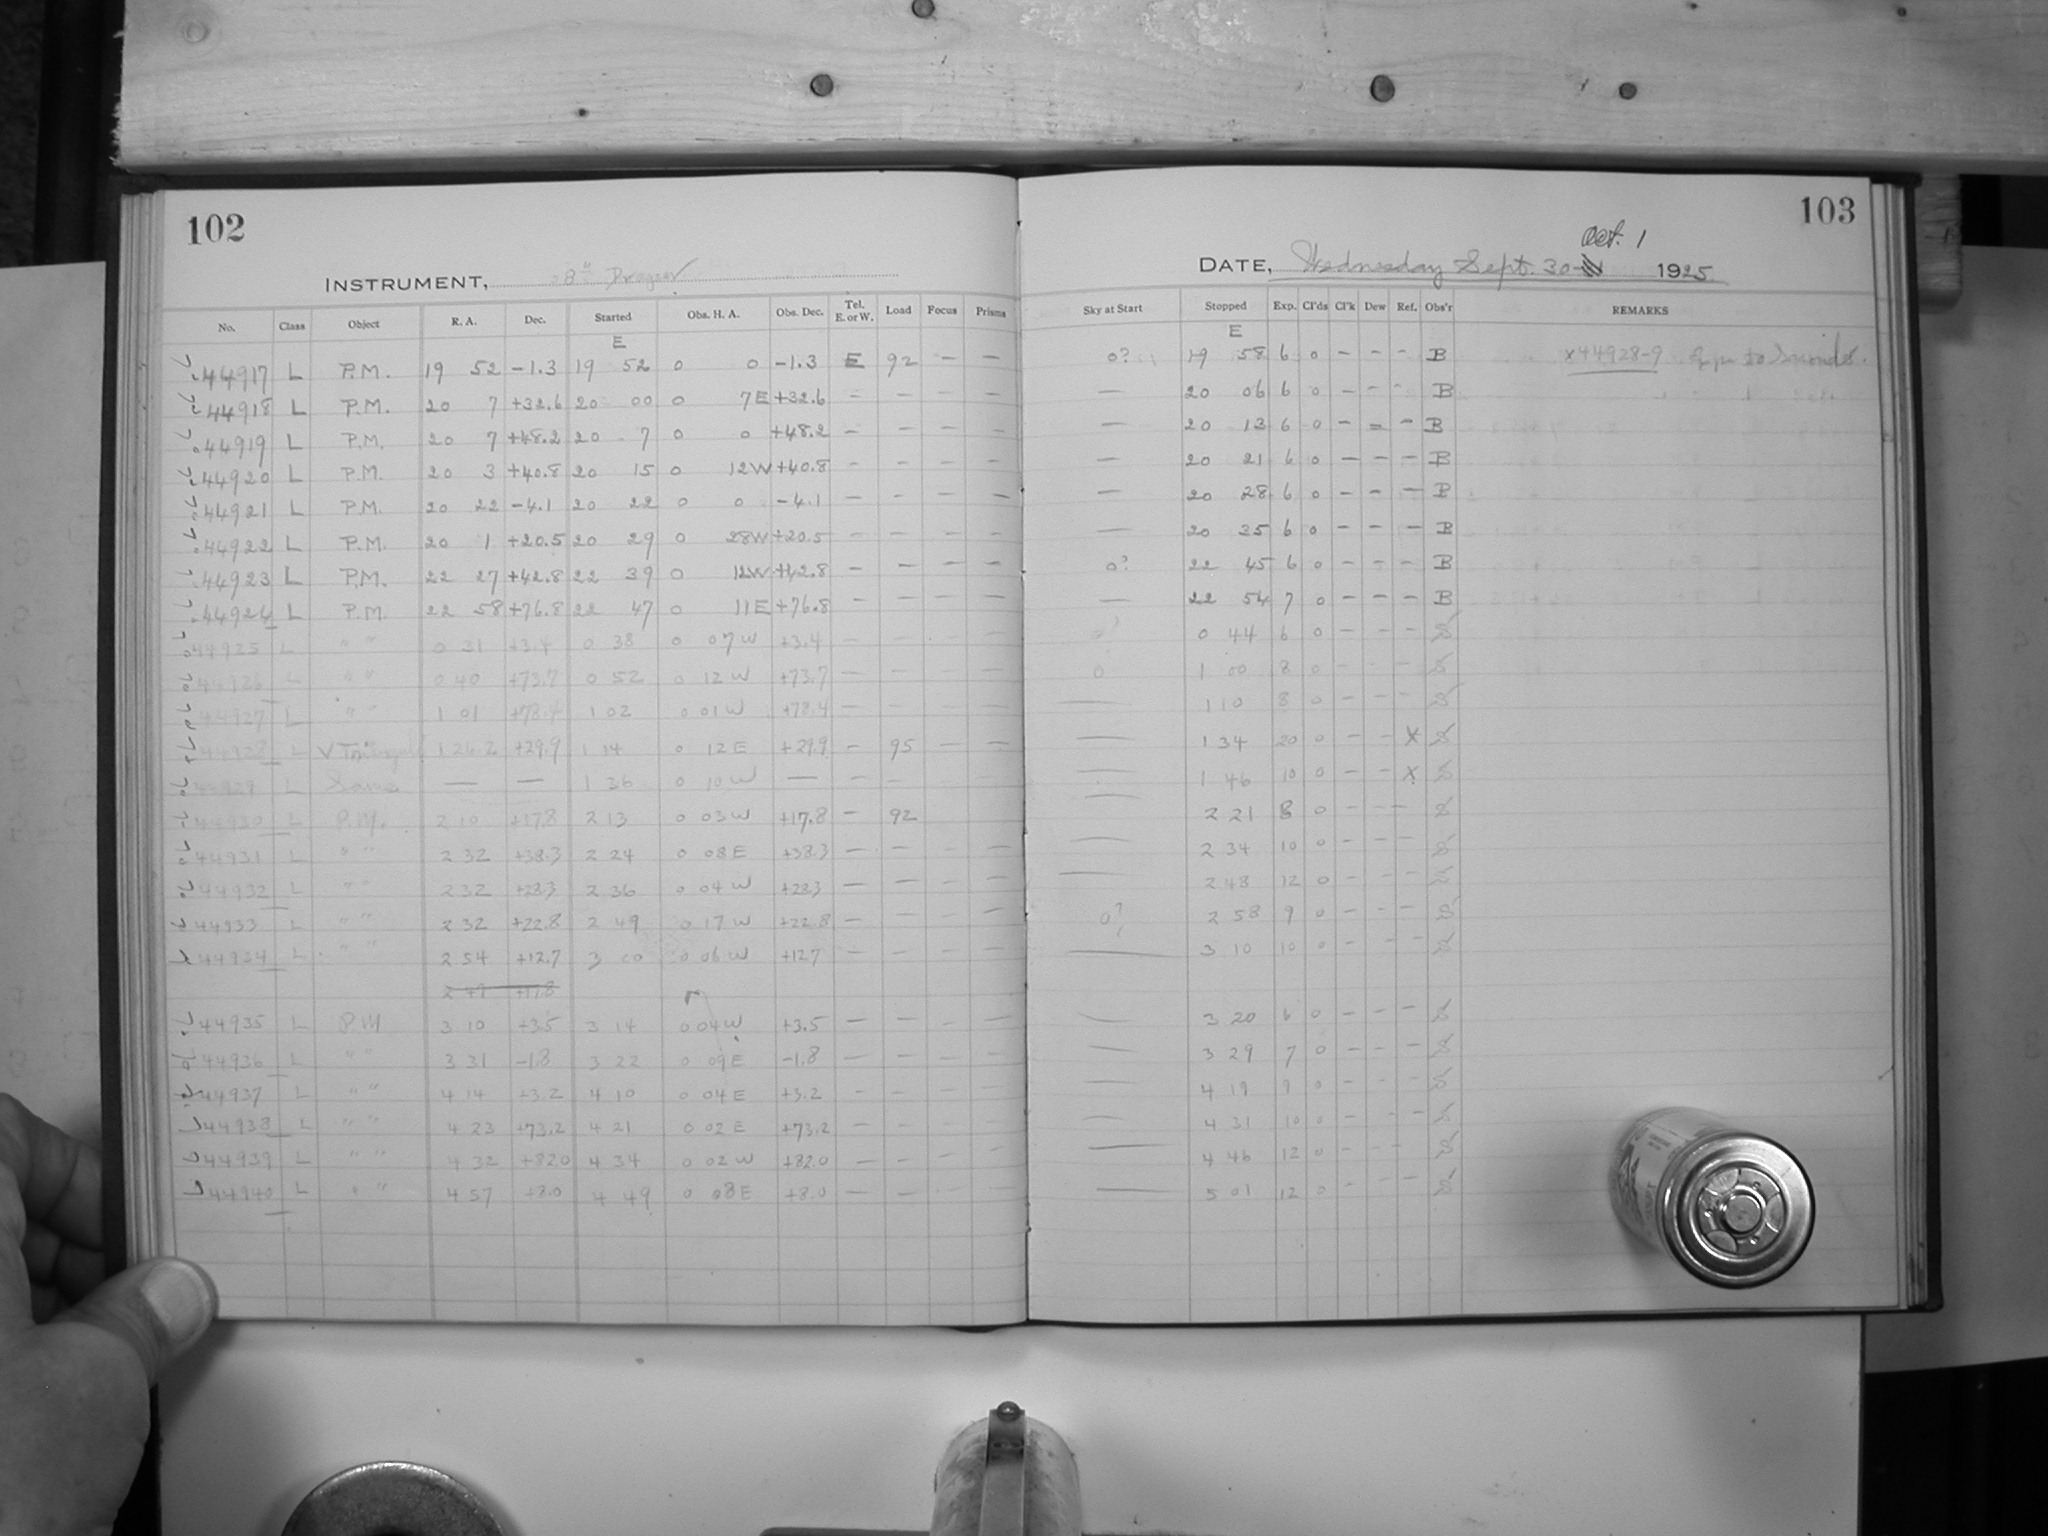 102
INSTRUMENT, 8" Draper
No. Class Object R. A. Dec. Started Obs. H. A. Obs. Dec. Tel. E. or W. Load Focus Prisms
E
44917 L P.M. 19 52 -1.3 19 52 0 0 -1.3 E 92 — —
44918 L P.M. 20 7 +32.6 20 00 0 7E +32.6 — — — —
44919 L P.M. 20 7 +48.2 20 7 0 0 +48.2 — — — —
44920 L P.M. 20 3 +40.8 20 15 0 12W +40.8 — — — —
44921 L P.M. 20 22 -4.1 20 22 0 0 -4.1 — — — —
44922 L P.M. 20 1 +20.5 20 29 0 28W +20.5 — — — —
44923 L P.M. 22 27 +42.8 22 39 0 12W +42.8 — — — —
44924 L P.M. 22 58 +76.8 22 47 0 11E +76.8 — — — —
44925 L " " 0 31 +3.4 0 38 0 07W +3.4 — — — —
44926 L " " 0 40 +73.7 0 52 0 12W +73.7 — — — —
44927 L " " 1 01 +78.4 1 02 0 01W +78.4 — — — —
44928 L V 1 26.2 +29.9 1 14 0 12E +29.9 — 95 — —
44929 L Same — — 1 36 0 10W — — — — —
44930 L P.M. 2 10 +17.8 2 13 0 03W +17.8 — 92
44931 L " " 2 32 +38.3 2 24 0 08E +38.3 — — — —
44932 L " " 2 32 +28.3 2 36 0 04W +28.3 — — — —
44933 L " " 2 32 +22.8 2 49 0 17W +22.8 — — — —
44934 L " " 2 54 +12.7 3 00 0 06W +12.7 — — — —
44935 L P.M. 3 10 +3.5 3 14 0 04W +3.5 — — — —
44936 L " " 3 31 -1.8 3 22 0 09E -1.8 — — — —
44937 L " " 4 14 +3.2 4 10 0 04E +3.2 — — — —
44938 L " " 4 23 +73.2 4 21 0 02E +73.2 — — — —
44939 L " " 4 32 +82.0 4 34 0 02W +82.0 — — — —
44940 L " " 4 57 +8.0 4 49 0 08E +8.0 — — — —
103
Oct. 1
DATE, Wednesday Sept. 30- 1925
Sky at Start Stopped Exp. Cl'ds Cl'k Dew Ref. Obs'r REMARKS
E
0? 19 58 6 0 — — — B x44928-9
— 20 06 6 0 — — — B
— 20 13 6 0 — — — B
— 20 21 6 0 — — — B
— 20 28 6 0 — — — B
— 20 35 6 0 — — — B
0? 22 45 6 0 — — — B
— 22 54 7 0 — — — B
0? 0 44 6 0 — — — S
0 1 00 8 0 — — — S
— 1 10 8 0 — — — S
— 1 34 20 0 — — X S
— 1 46 10 0 — — X S
— 2 21 8 0 — — — S
— 2 34 10 0 — — — S
— 2 48 12 0 — — — S
0? 2 58 9 0 — — — S
— 3 10 10 0 — — — S
— 3 20 6 0 — — — S
— 3 29 7 0 — — — S
— 4 19 9 0 — — — S
— 4 31 10 0 — — — S
— 4 46 12 0 — — — S
— 5 01 12 0 — — — S